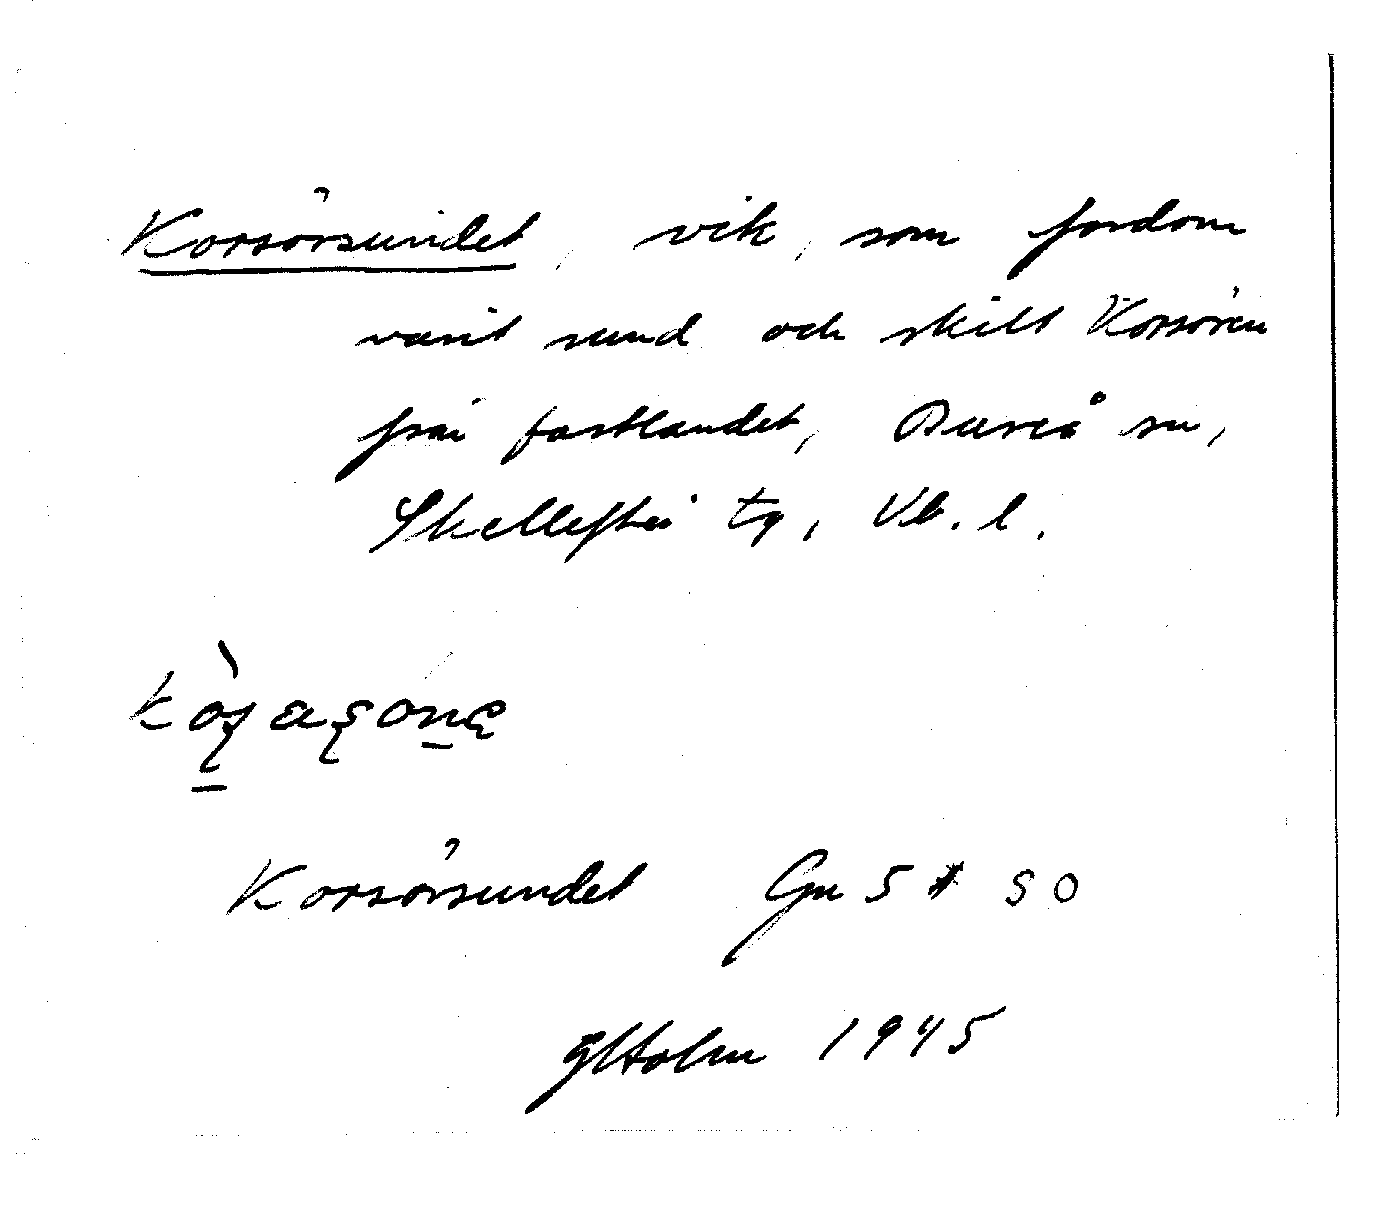 Korsörsundet, vik, som fordom
varit sund och skilt Korsören
från fastlandet, Bureå sn,
Skellefteå tg, Vb. l.
Korsörsundet Gn 5 * SO
Holm 1945